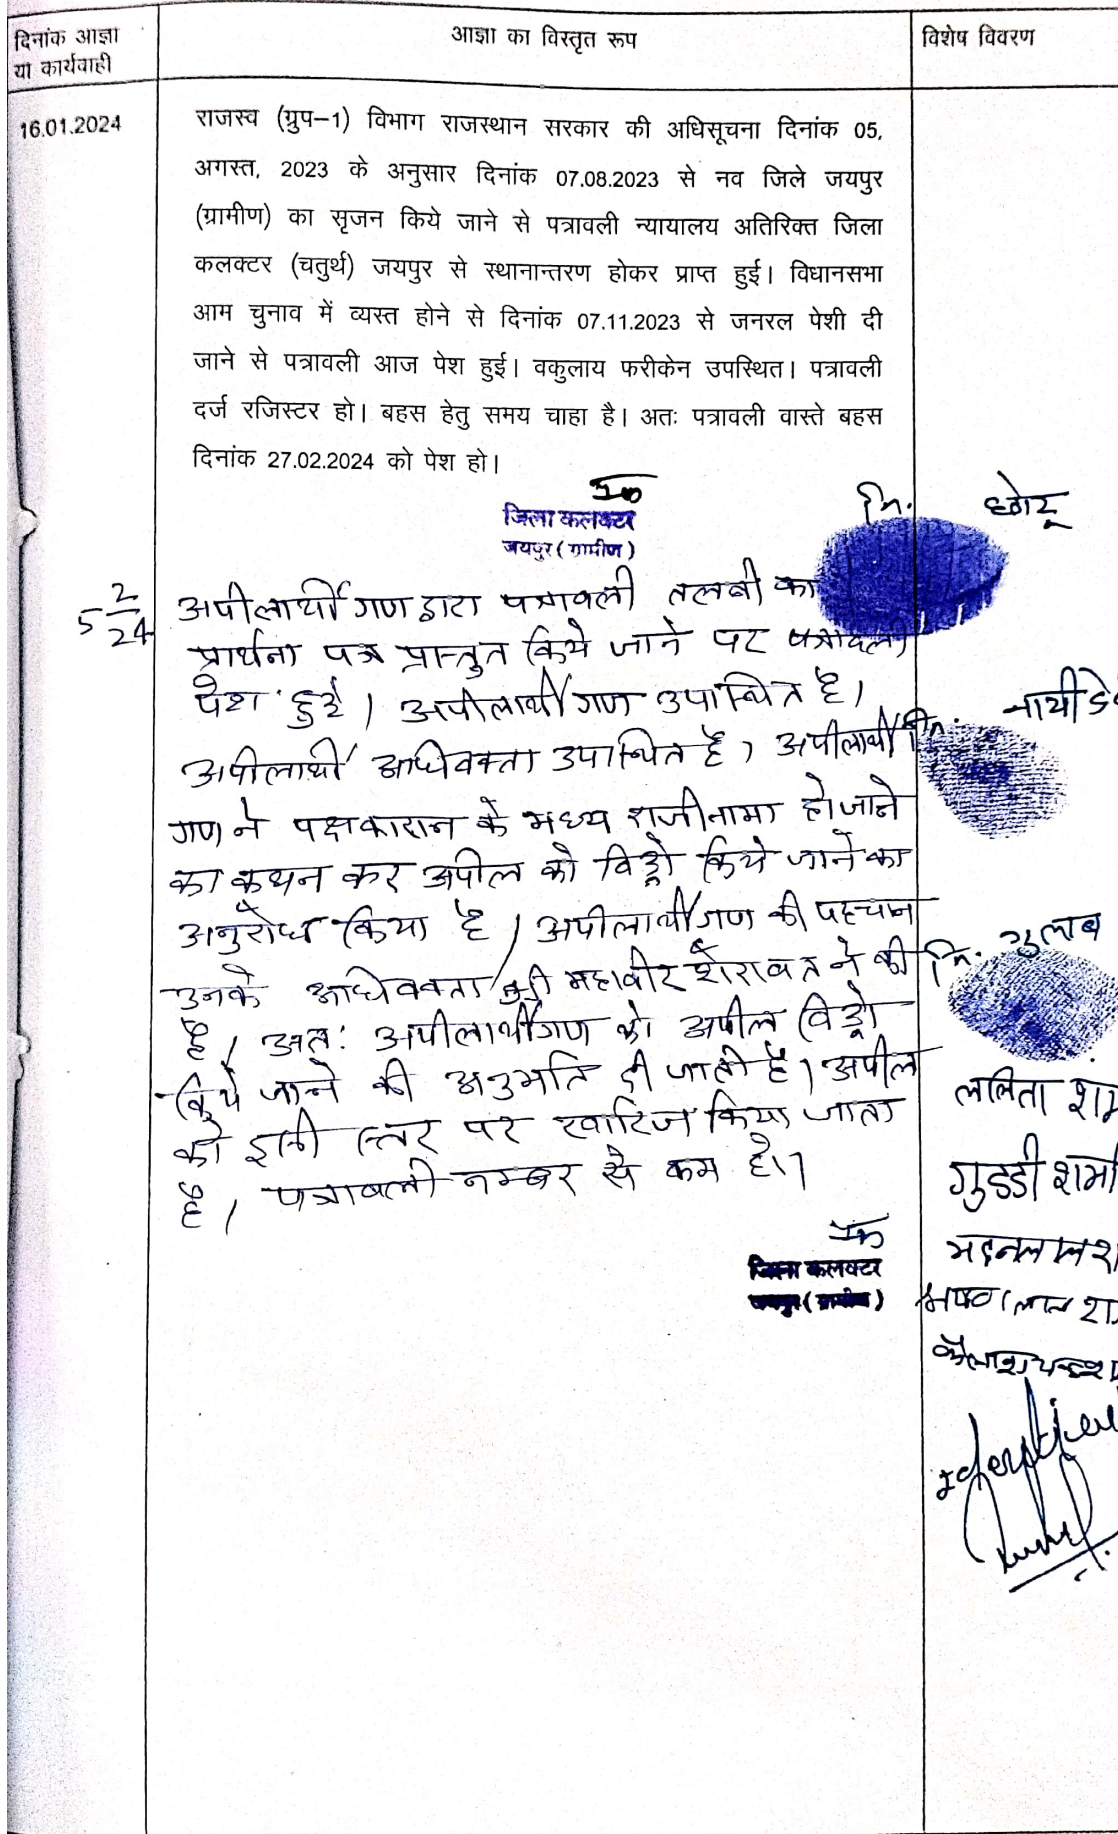 दिनांक आज्ञा
या कार्यवाही
आज्ञा का विस्तृत रूप
विशेष विवरण
16.01.2024
राजस्व (ग्रुप–1) विभाग राजस्थान सरकार की अधिसूचना दिनांक 05,
अगस्त, 2023 के अनुसार दिनांक 07.08.2023 से नव जिले जयपुर
(ग्रामीण) का सृजन किये जाने से पत्रावली न्यायालय अतिरिक्त जिला
कलक्टर (चतुर्थ) जयपुर से स्थानान्तरण होकर प्राप्त हुई। विधानसभा
आम चुनाव में व्यस्त होने से दिनांक 07.11.2023 से जनरल पेशी दी
जाने से पत्रावली आज पेश हुई। वकुलाय फरीकेन उपस्थित। पत्रावली
दर्ज रजिस्टर हो। बहस हेतु समय चाहा है। अतः पत्रावली वास्ते बहस
दिनांक 27.02.2024 को पेश हो।
जिला कलक्टर
जयपुर (ग्रामीण)
नि. छोटू
5 2/24
अपीलार्थी गण द्वारा पत्रावली तलबी का
प्रार्थना पत्र प्रस्तुत किये जाने पर पत्रावली
पेश हुई। अपीलार्थी गण उपस्थित है।
नि. नाथी दे
अपीलार्थी अधिवक्ता उपस्थित है। अपीलार्थी
गण ने पक्षकारान के मध्य राजीनामा हो जाने
का कथन कर अपील को विड्रो किये जाने का
अनुरोध किया है। अपीलार्थीगण की पहचान
नि. गुलाब
उनके अधिवक्ता श्री महावीर शेरावत ने की
है। अतः अपीलार्थीगण को अपील विड्रो
किये जाने की अनुमति दी जाती है। अपील
को इसी स्तर पर खारिज किया जाता
है। पत्रावली नम्बर से कम हो।
ललिता शर्म
गुड्डी शर्मा
मदनलाल श
जिला कलक्टर
जयपुर (ग्रामीण)
लाल श
कैलाश चन्द श